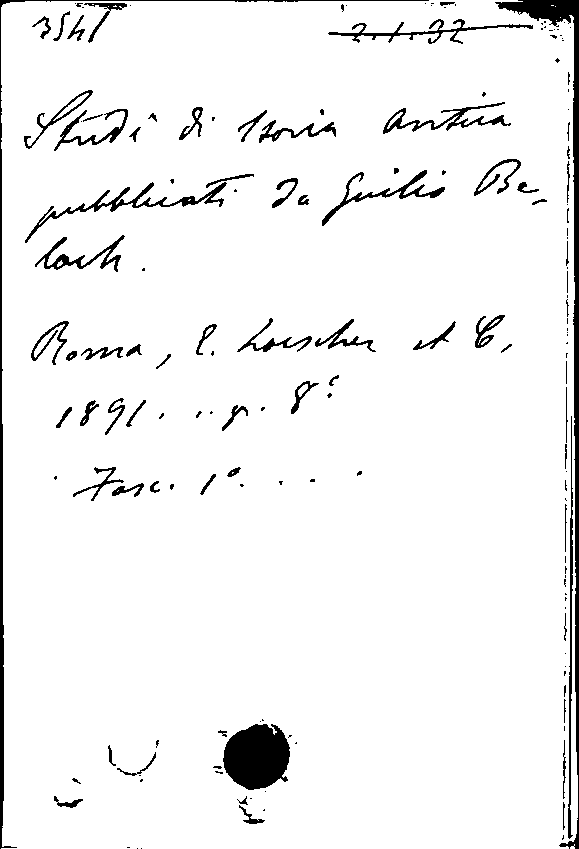 3541 2.1.32
Studi di storia antica
pubblicati da Giulio Be-
loch.
Roma, E. Loescher et C,
1891. .. p. 8º
Fasc. 1º. . . .